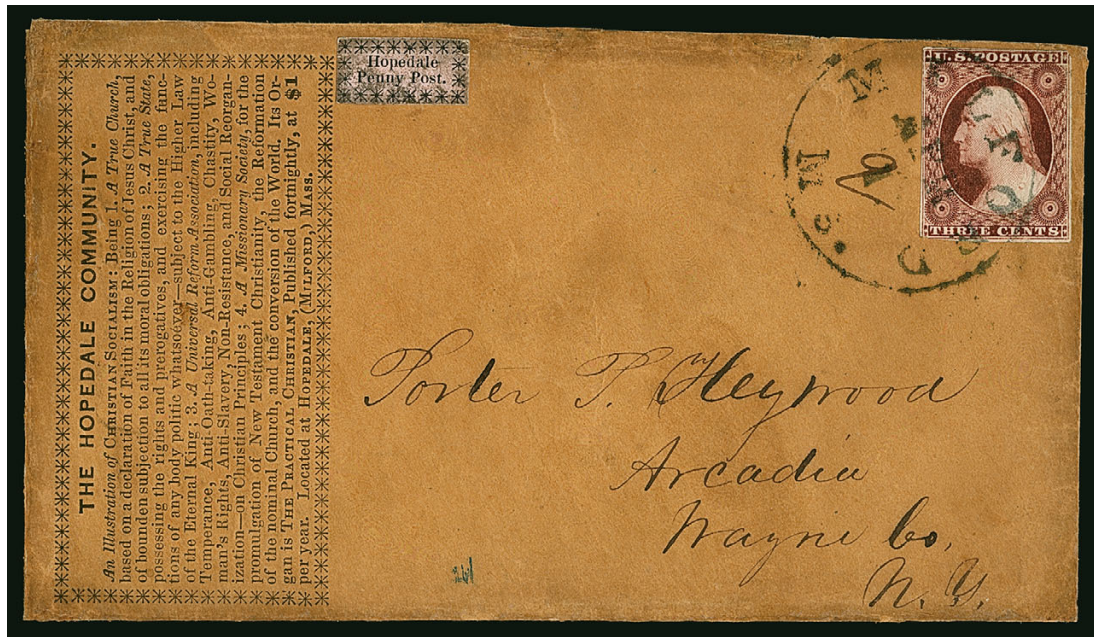 THE HOPEDALE COMMUNITY.
An Illustration of CHRISTIAN SOCIALISM: Being 1. A True Church,
based on a declaration of Faith in the Religion of Jesus Christ, and
of bounden subjection to all its moral obligations; 2. A True State,
possessing the rights and prerogatives, and exercising the func-
tions of any body politic whatsoever—subject to the Higher Law
of the Eternal King; 3. A Universal Reform Association, including
Temperance, Anti-Oath-taking, Anti-Gambling, Chastity, Wo-
man's Rights, Anti-Slavery, Non-Resistance, and Social Reorgan-
ization—on Christian Principles; 4. A Missionary Society, for the
promulgation of New Testament Christianity, the Reformation
of the nominal Church, and the conversion of the World. Its Or-
gan is THE PRACTICAL CHRISTIAN, Published fortnightly, at $1
per year. Located at HOPEDALE, (MILFORD,) MASS.
Hopedale
Penny Post.
U.S. POSTAGE
THREE CENTS
MILFORD Ms.
9
Porter P. Heywood
Arcadia
Wayne Co.
N. Y.